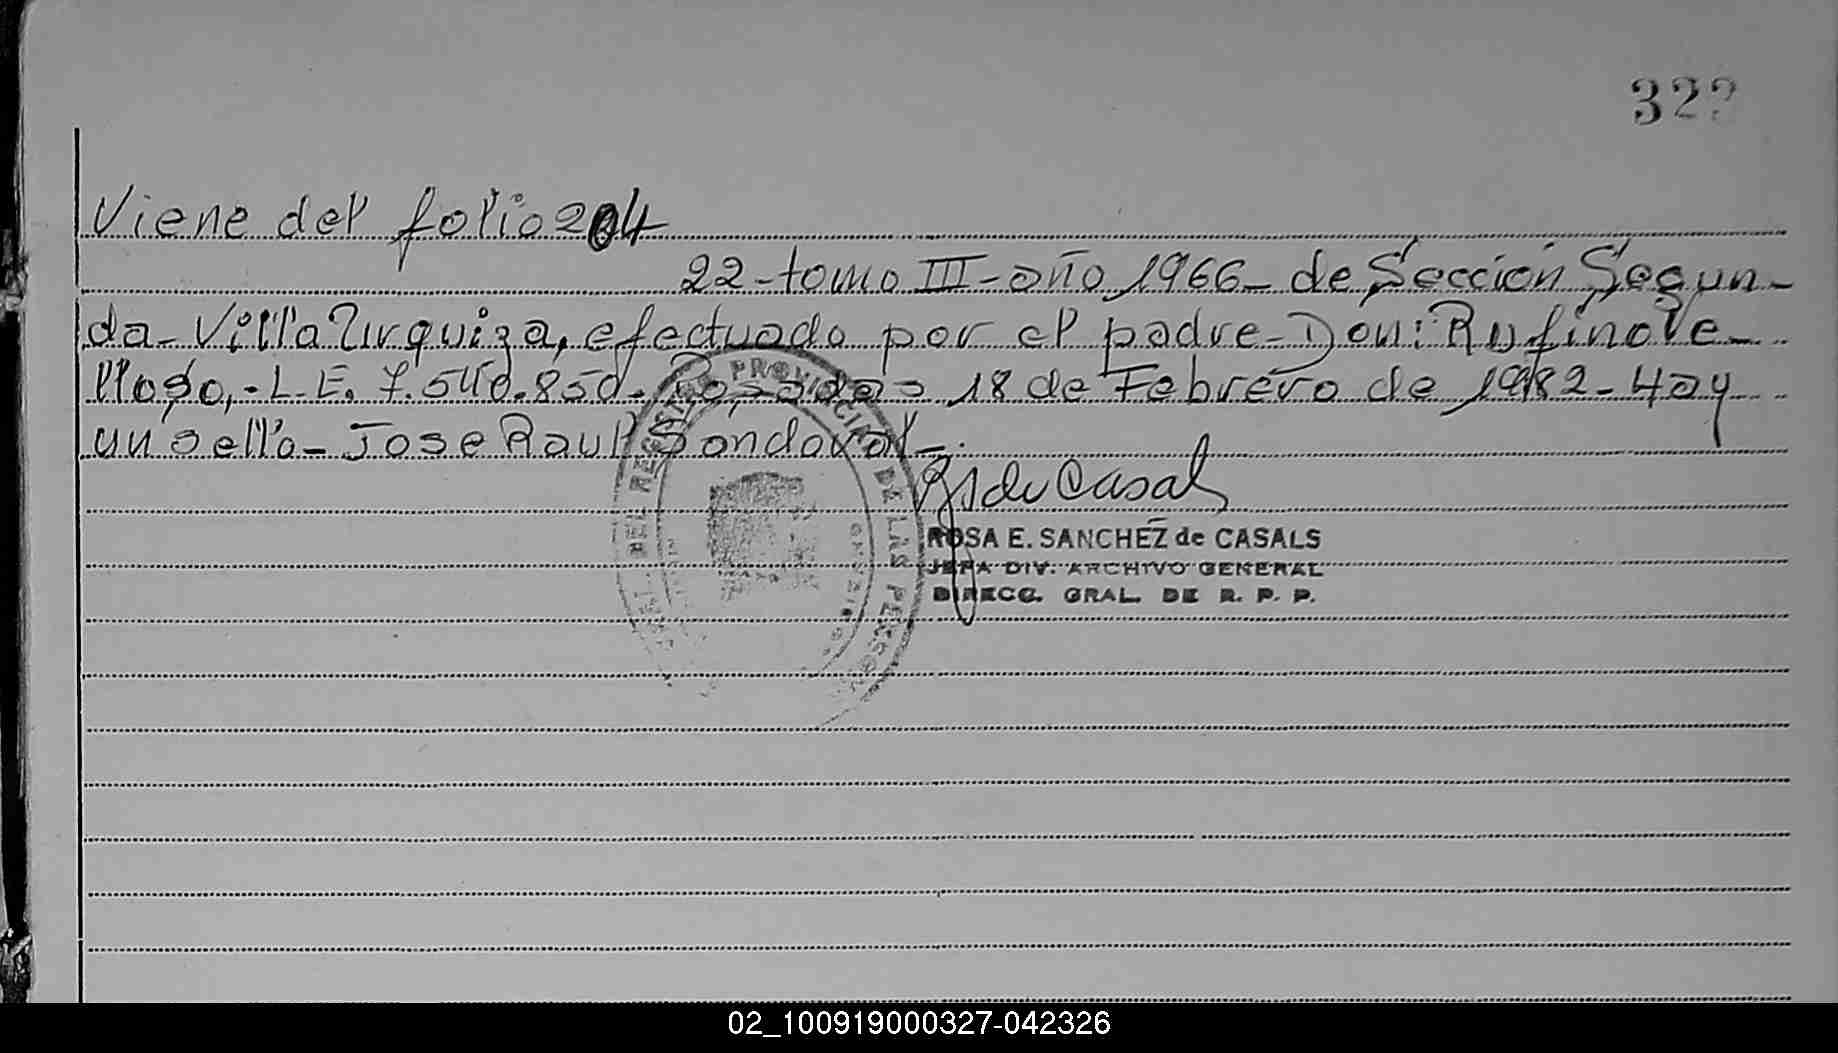 32
Viene del folio 204
22-tomo III-año 1966- de Sección Segun-
da-Villa Urquiza, efectuado por el padre-Don: Rufino Ve-
lloso,-L.E. 7.540.850. Posadas 18 de Febrero de 1982-Hay
un sello-Jose Raul Sandoval-.
ROSA E. SANCHEZ de CASALS
JEFA DIV. ARCHIVO GENERAL
DIRECC. GRAL. DE R. P. P.
DEL REGISTRO PROVINCIAL DE LAS PERSONAS
02_100919000327-042326